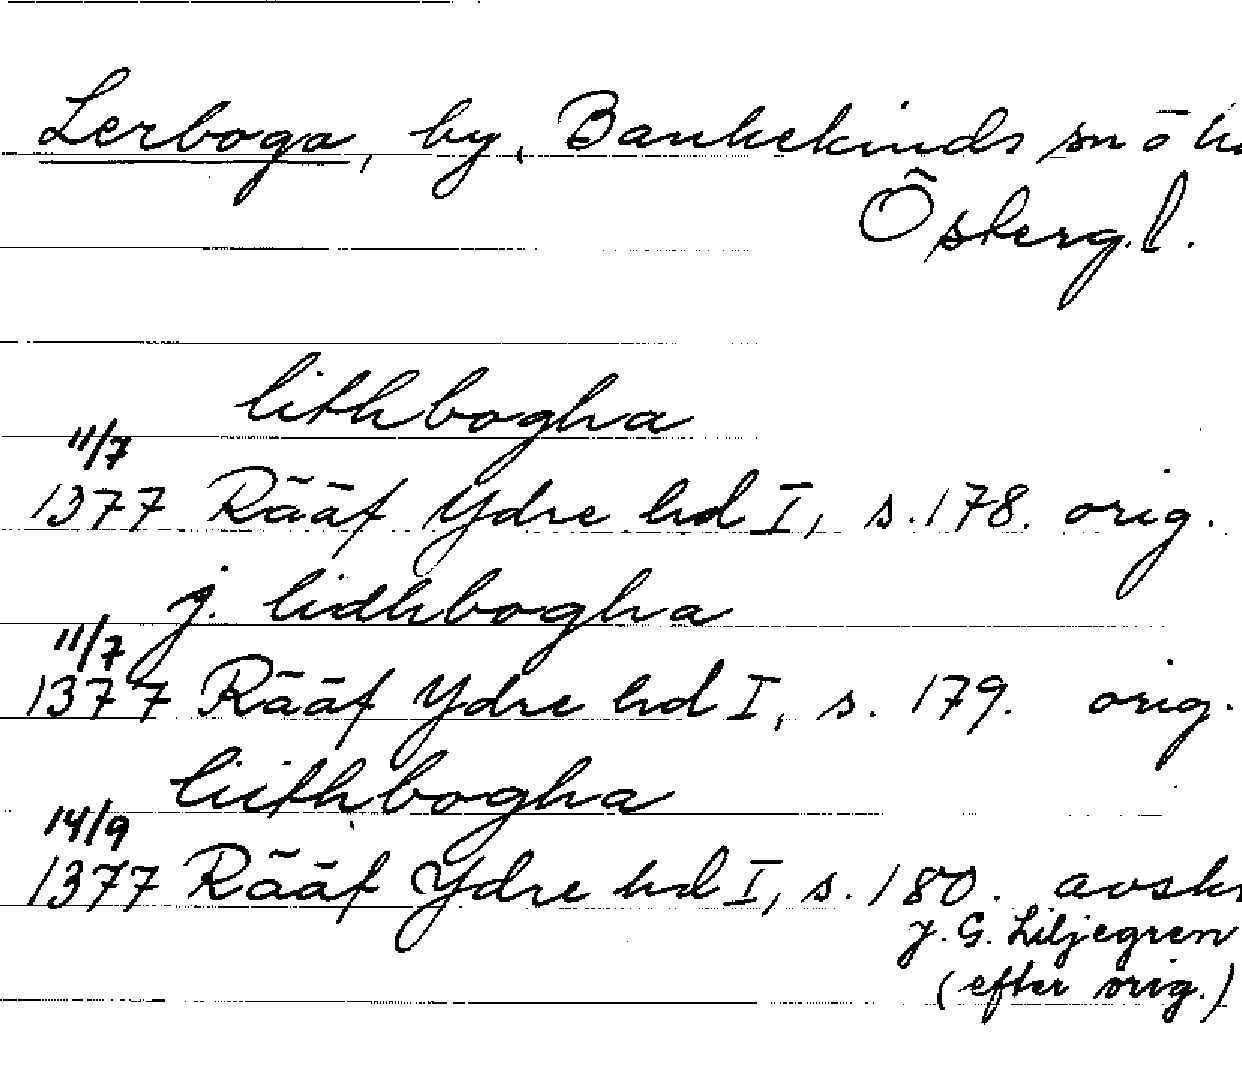 Lerboga, by, Bankekinds sn o h
Österg. l.
lithbogha
11/7
1377 Rääf Ydre hd I, s. 178. orig.
j. lidhbogha
11/7
1377 Rääf Ydre hd I, s. 179. orig.
liithbogha
14/9
1377 Rääf Ydre hd I, s. 180. avskr
J. G. Liljegren
(efter orig.)